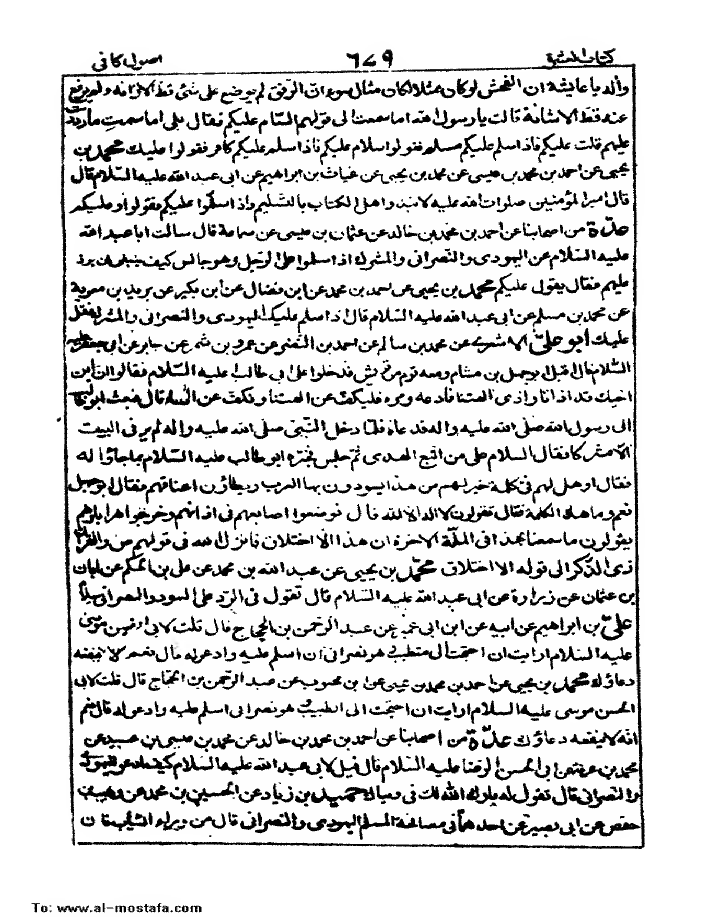 كتاب العشرة ٦٤٩ اصول كافى
وآله يا عايشة ان الفحش لو كان مثلا لكان مثال سوء ان الرفق لم يوضع على شئ قط الا زانه ولم يرفع
عنه قط الا شانه قالت يا رسول الله اما سمعت الى قولهم السام عليكم فقال بلى اما سمعت ما رددت
عليهم قلت عليكم فاذا سلم عليكم مسلم فقولوا سلام عليكم فاذا سلم عليكم كافر فقولوا عليك محمد بن
يحيى عن احمد بن محمد بن عيسى عن محمد بن يحيى عن غياث بن ابراهيم عن ابى عبد الله عليه السلام قال
قال امير المؤمنين صلوات الله عليه لا تبدوا اهل الكتاب بالتسليم واذا سلموا عليكم فقولوا وعليكم
عدة من اصحابنا عن احمد بن محمد بن خالد عن عثمان بن عيسى عن سماعة قال سالت ابا عبد الله
عليه السلام عن اليهودى والنصرانى والمشرك اذا سلموا على الرجل وهو جالس كيف ينبغى ان يرد
عليهم فقال يقول عليكم محمد بن يحيى عن احمد بن محمد عن ابن فضال عن ابن بكير عن بريد بن معوية
عن محمد بن مسلم عن ابى عبد الله عليه السلام قال اذا سلم عليك اليهودى والنصرانى والمشرك فقل
عليك ابو على الاشعرى عن محمد بن سالم عن احمد بن النضر عن عمرو بن شمر عن جابر عن ابى جعفر عليه
السلام قال اقبل ابو جهل بن هشام ومعه قوم من قريش فدخلوا على ابى طالب عليه السلام فقالوا ان ابن
اخيك قد اذانا واذى الهتنا فادعه ومره فليكف عن الهتنا ونكف عن الهه قال فبعث ابو طالب
الى رسول الله صلى الله عليه واله فدعاه فلما دخل النبى صلى الله عليه واله لم ير فى البيت
الا مشركا فقال السلام على من اتبع الهدى ثم جلس فخبره ابو طالب عليه السلام بما جاؤا له
فقال او هل لهم فى كلمة خير لهم من هذا يسودون بها العرب ويطاؤن اعناقهم فقال ابو جهل
نعم وما هذه الكلمة فقال تقولون لا اله الا الله قال فوضعوا اصابعهم فى اذانهم وخرجوا هرابا وهم
يقولون ما سمعنا بهذا فى الملة الاخرة ان هذا الا اختلاق فانزل الله فى قولهم ص والقران
ذى الذكر الى قوله الا اختلاق محمد بن يحيى عن عبد الله بن محمد عن على بن الحكم عن ابان
بن عثمان عن زرارة عن ابى عبد الله عليه السلام قال تقول فى الرد على اليهودى والنصرانى سلام
على بن ابراهيم عن ابيه عن ابن ابى عمير عن عبد الرحمن بن الحجاج قال قلت لابى الحسن موسى
عليه السلام ارايت ان احتجت الى متطبب وهو نصرانى ان اسلم عليه وادعو له قال نعم لا ينفعه
دعاؤك محمد بن يحيى عن احمد بن محمد بن عيسى عن ابن محبوب عن عبد الرحمن بن الحجاج قال قلت لابى
الحسن موسى عليه السلام ارايت ان احتجت الى الطبيب وهو نصرانى اسلم عليه وادعو له قال نعم
انه لا ينفعه دعاؤك عدة من اصحابنا عن احمد بن محمد بن خالد عن محمد بن عيسى بن عبيد عن
محمد بن عرفة عن ابى الحسن الرضا عليه السلام قال قيل لابى عبد الله عليه السلام كيف ادعو لليهودى
والنصرانى قال تقول له بارك الله لك فى دنياك حميد بن زياد عن الحسين بن محمد عن وهيب بن
حفص عن ابى بصير عن احدهما فى مصافحة المسلم اليهودى والنصرانى قال من وراء الثياب فان
To: www.al-mostafa.com